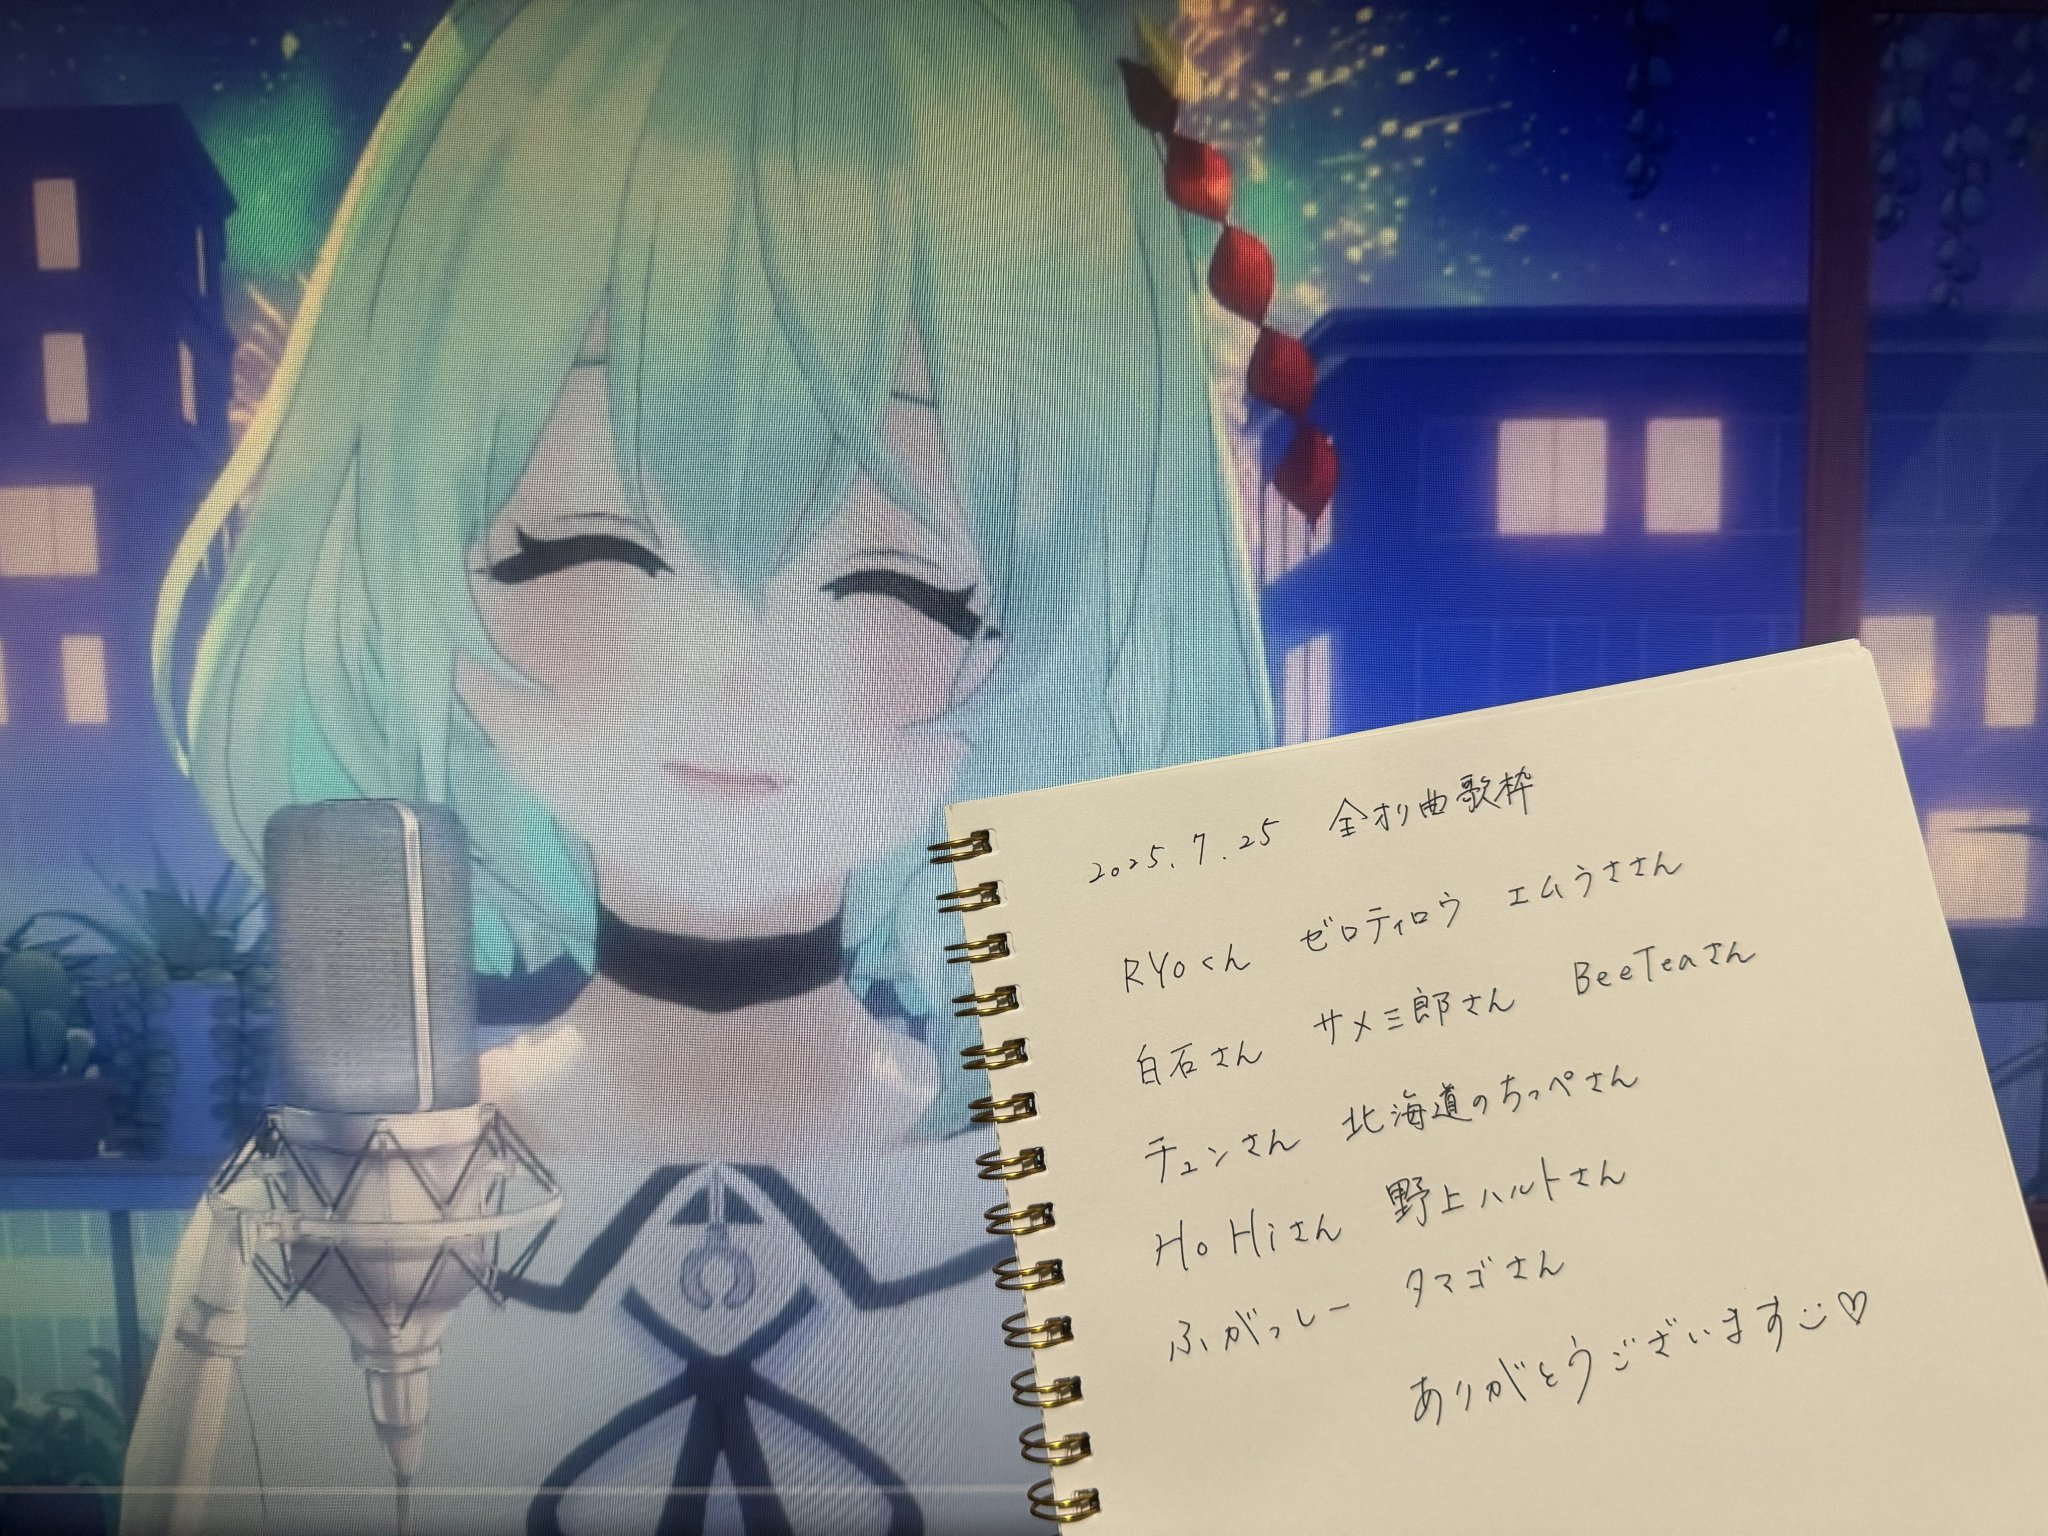 2025.7.25 全オリ曲歌枠
RYoくん ゼロティロウ エムうささん
白石さん サメ三郎さん BeeTeaさん
チュンさん 北海道のちっぺさん
HoHiさん 野上ハルトさん
ふがっしー タマゴさん
ありがとうございます